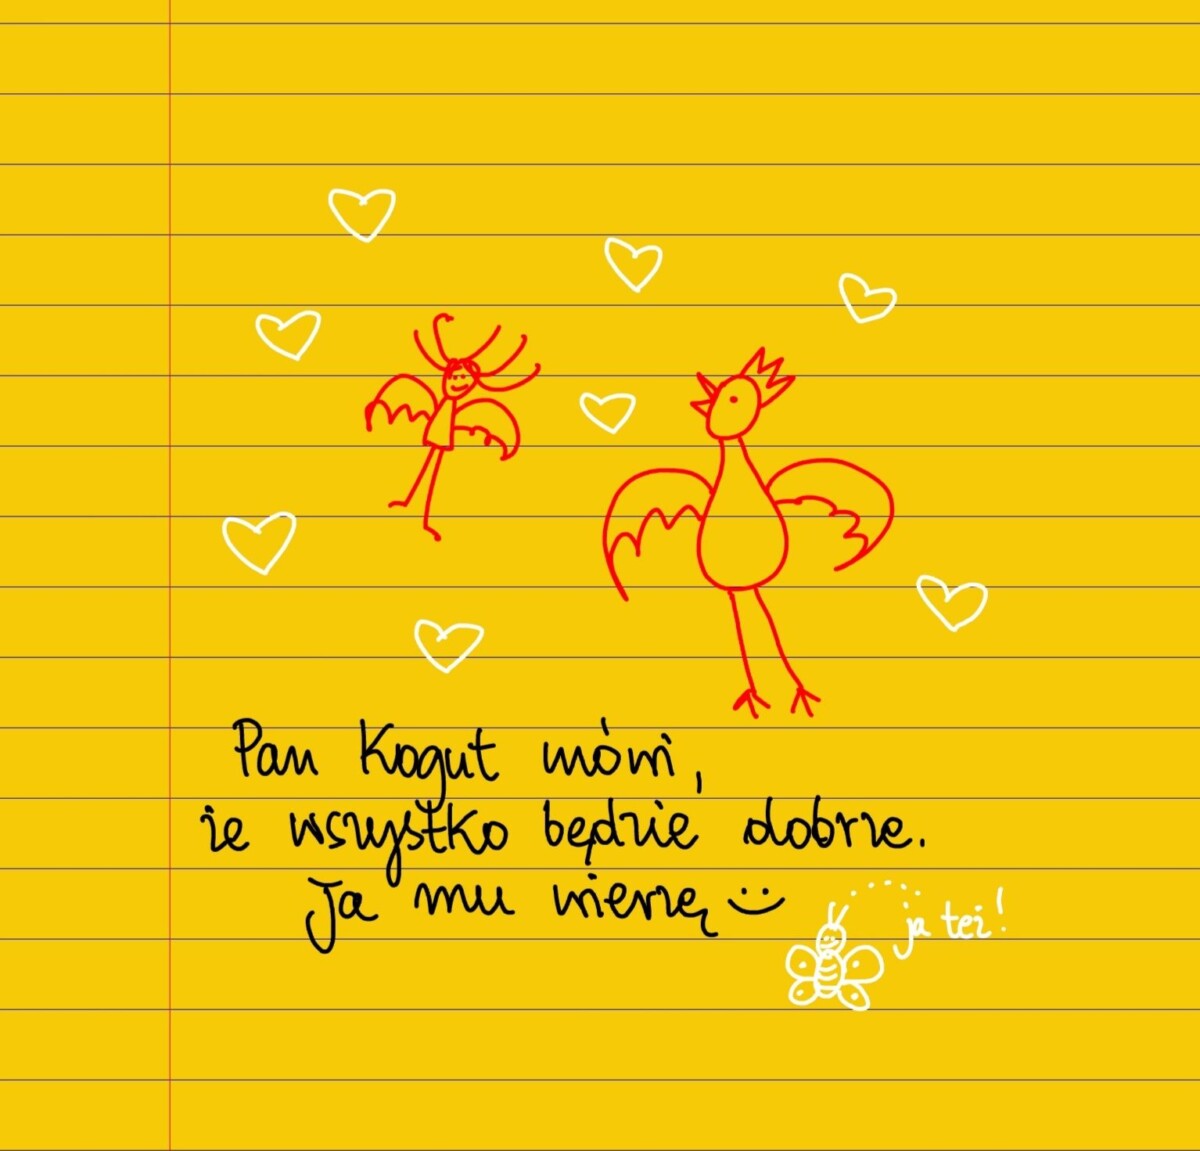 Pan Kogut mówi,
że wszystko będzie dobrze.
Ja mu wierzę :)
ja też!